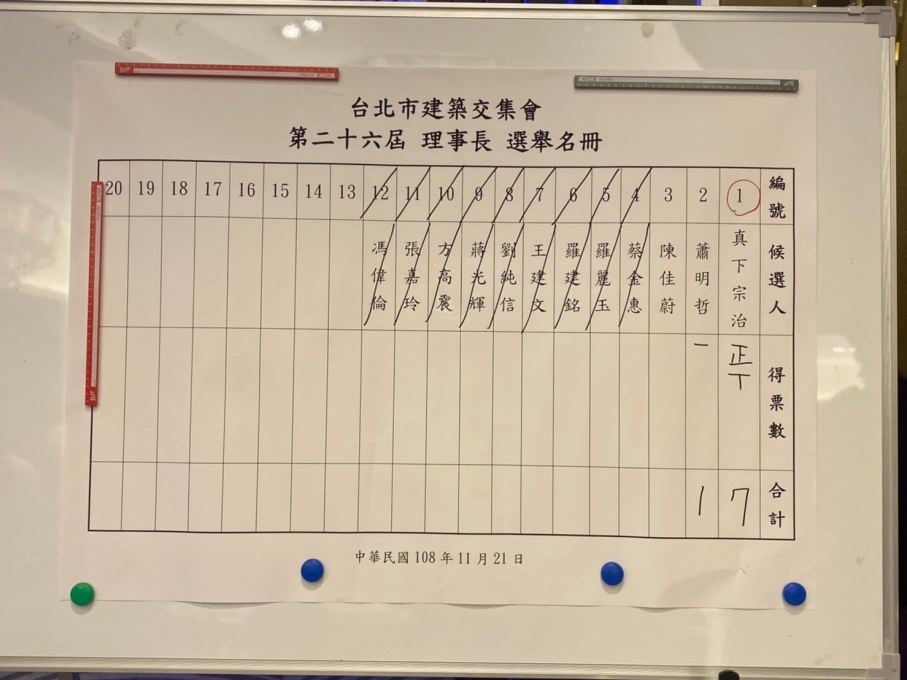 台北市建築交集會
第二十六屆 理事長 選舉名冊
編號 1 2 3 4 5 6 7 8 9 10 11 12 13 14 15 16 17 18 19 20
候選人 真下宗治 蕭明哲 陳佳蔚 蔡金惠 羅麗玉 羅建銘 王建文 劉純信 蔣光輝 方高震 張嘉玲 馮偉倫
得票數 正丅 一
合計 7 1
中華民國 108 年 11 月 21 日